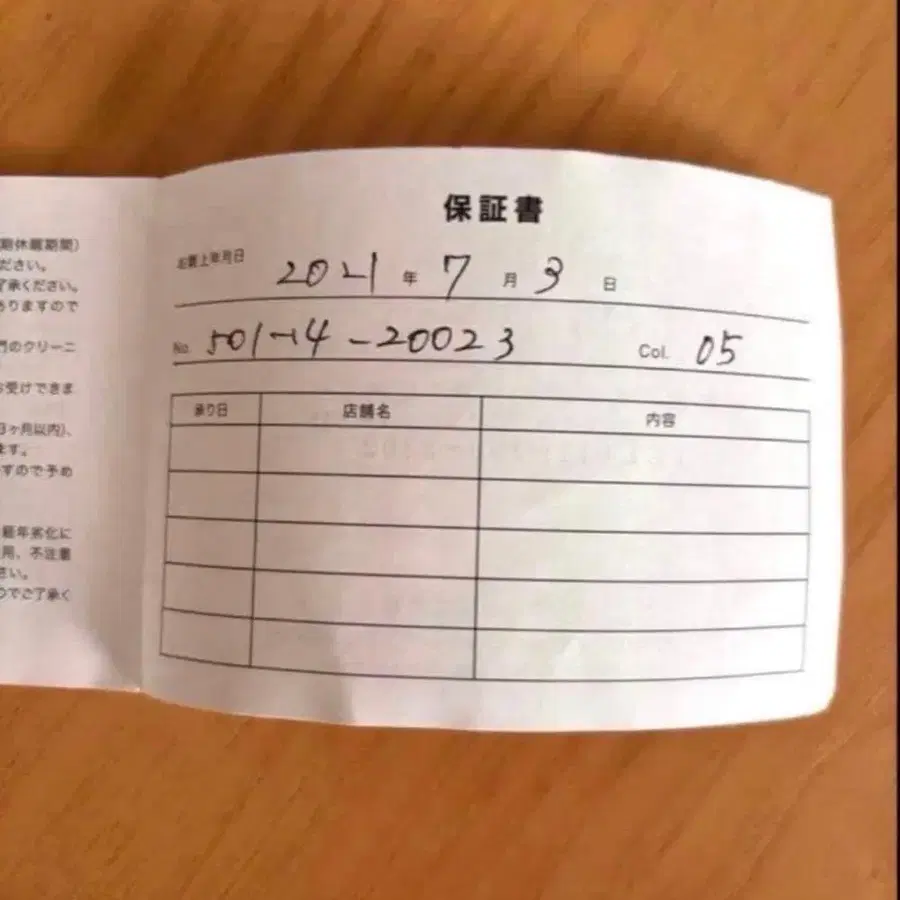 期休暇期間)
ださい。
了承ください。
ありますので
門のクリーニ
お受けできま
日ヶ月以内)、
ます。
すので予め
経年劣化に
用、不注意
さい。
のでご了承く
保証書
お買上年月日 2021 年 7 月 3 日
No. 501-14-20023 Col. 05
承り日 店舗名 内容